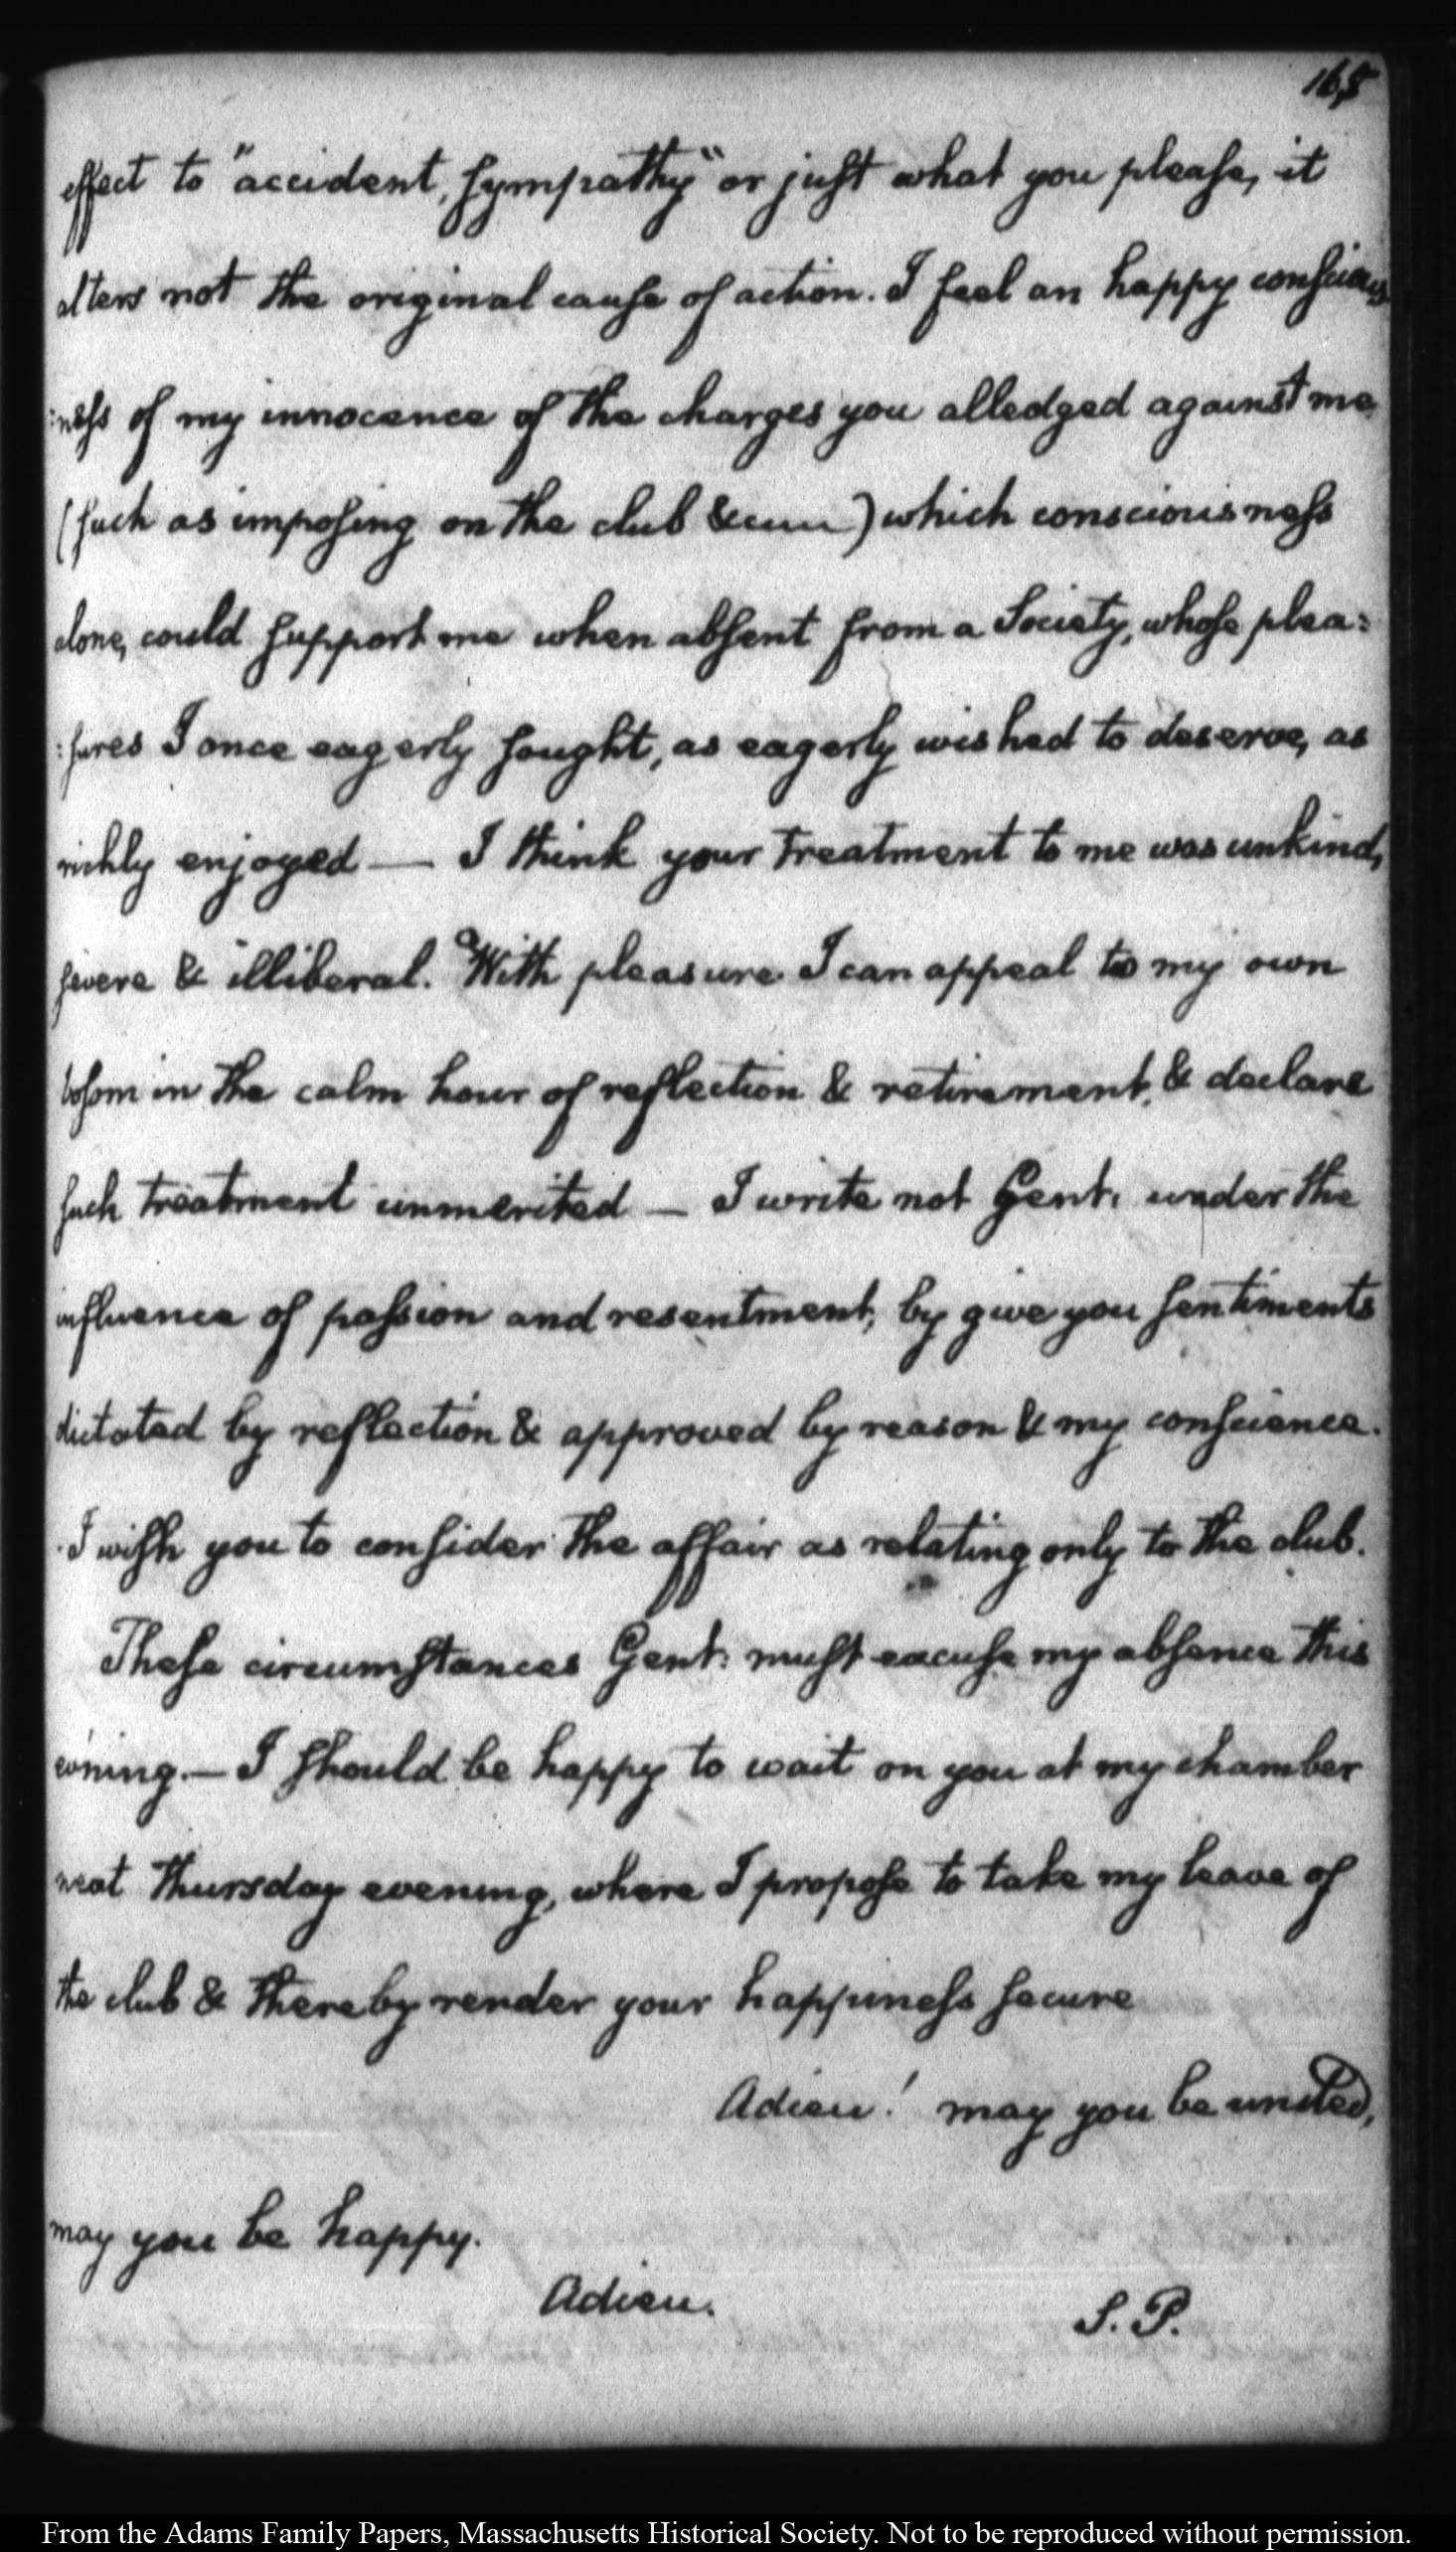 165
effect to "accident, sympathy" or just what you please, it
alters not the original cause of action. I feel an happy conscious
:ness of my innocence of the charges you alledged against me,
(such as imposing on the club &c) which consciousness
alone, could support me when absent from a Society, whose plea:
:sures I once eagerly sought, as eagerly wished to deserve, as
richly enjoyed — I think your treatment to me was unkind,
severe & illiberal. With pleasure I can appeal to my own
bosom in the calm hour of reflection & retirement, & declare
such treatment unmerited — I write not Gent: under the
influence of passion and resentment, by give you sentiments
dictated by reflection & approved by reason & my conscience.
I wish you to consider the affair as relating only to the club.
These circumstances Gent: must excuse my absence this
evening. — I should be happy to wait on you at my chamber
next Thursday evening, where I propose to take my leave of
the club & thereby render your happiness secure
Adieu! may you be united,
may you be happy.
Adieu. S. P.
From the Adams Family Papers, Massachusetts Historical Society. Not to be reproduced without permission.